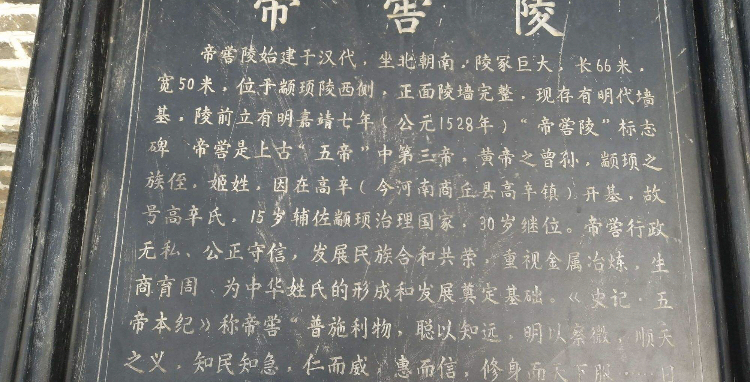 帝喾陵
帝喾陵始建于汉代，坐北朝南，陵冢巨大，长66米，
宽50米，位于颛顼陵西侧，正面陵墙完整，现存有明代墙
基，陵前立有明嘉靖七年（公元1528年）“帝喾陵”标志
碑 帝喾是上古“五帝”中第三帝，黄帝之曾孙，颛顼之
族侄，姬姓，因在高辛（今河南商丘县高辛镇）开基，故
号高辛氏，15岁辅佐颛顼治理国家，30岁继位。帝喾行政
无私、公正守信，发展民族合和共荣，重视金属冶炼，生
商育周、为中华姓氏的形成和发展奠定基础。《史记·五
帝本纪》称帝喾“普施利物，聪以知远，明以察微，顺天
之义，知民知急，仁而威，惠而信，修身而天下服……日